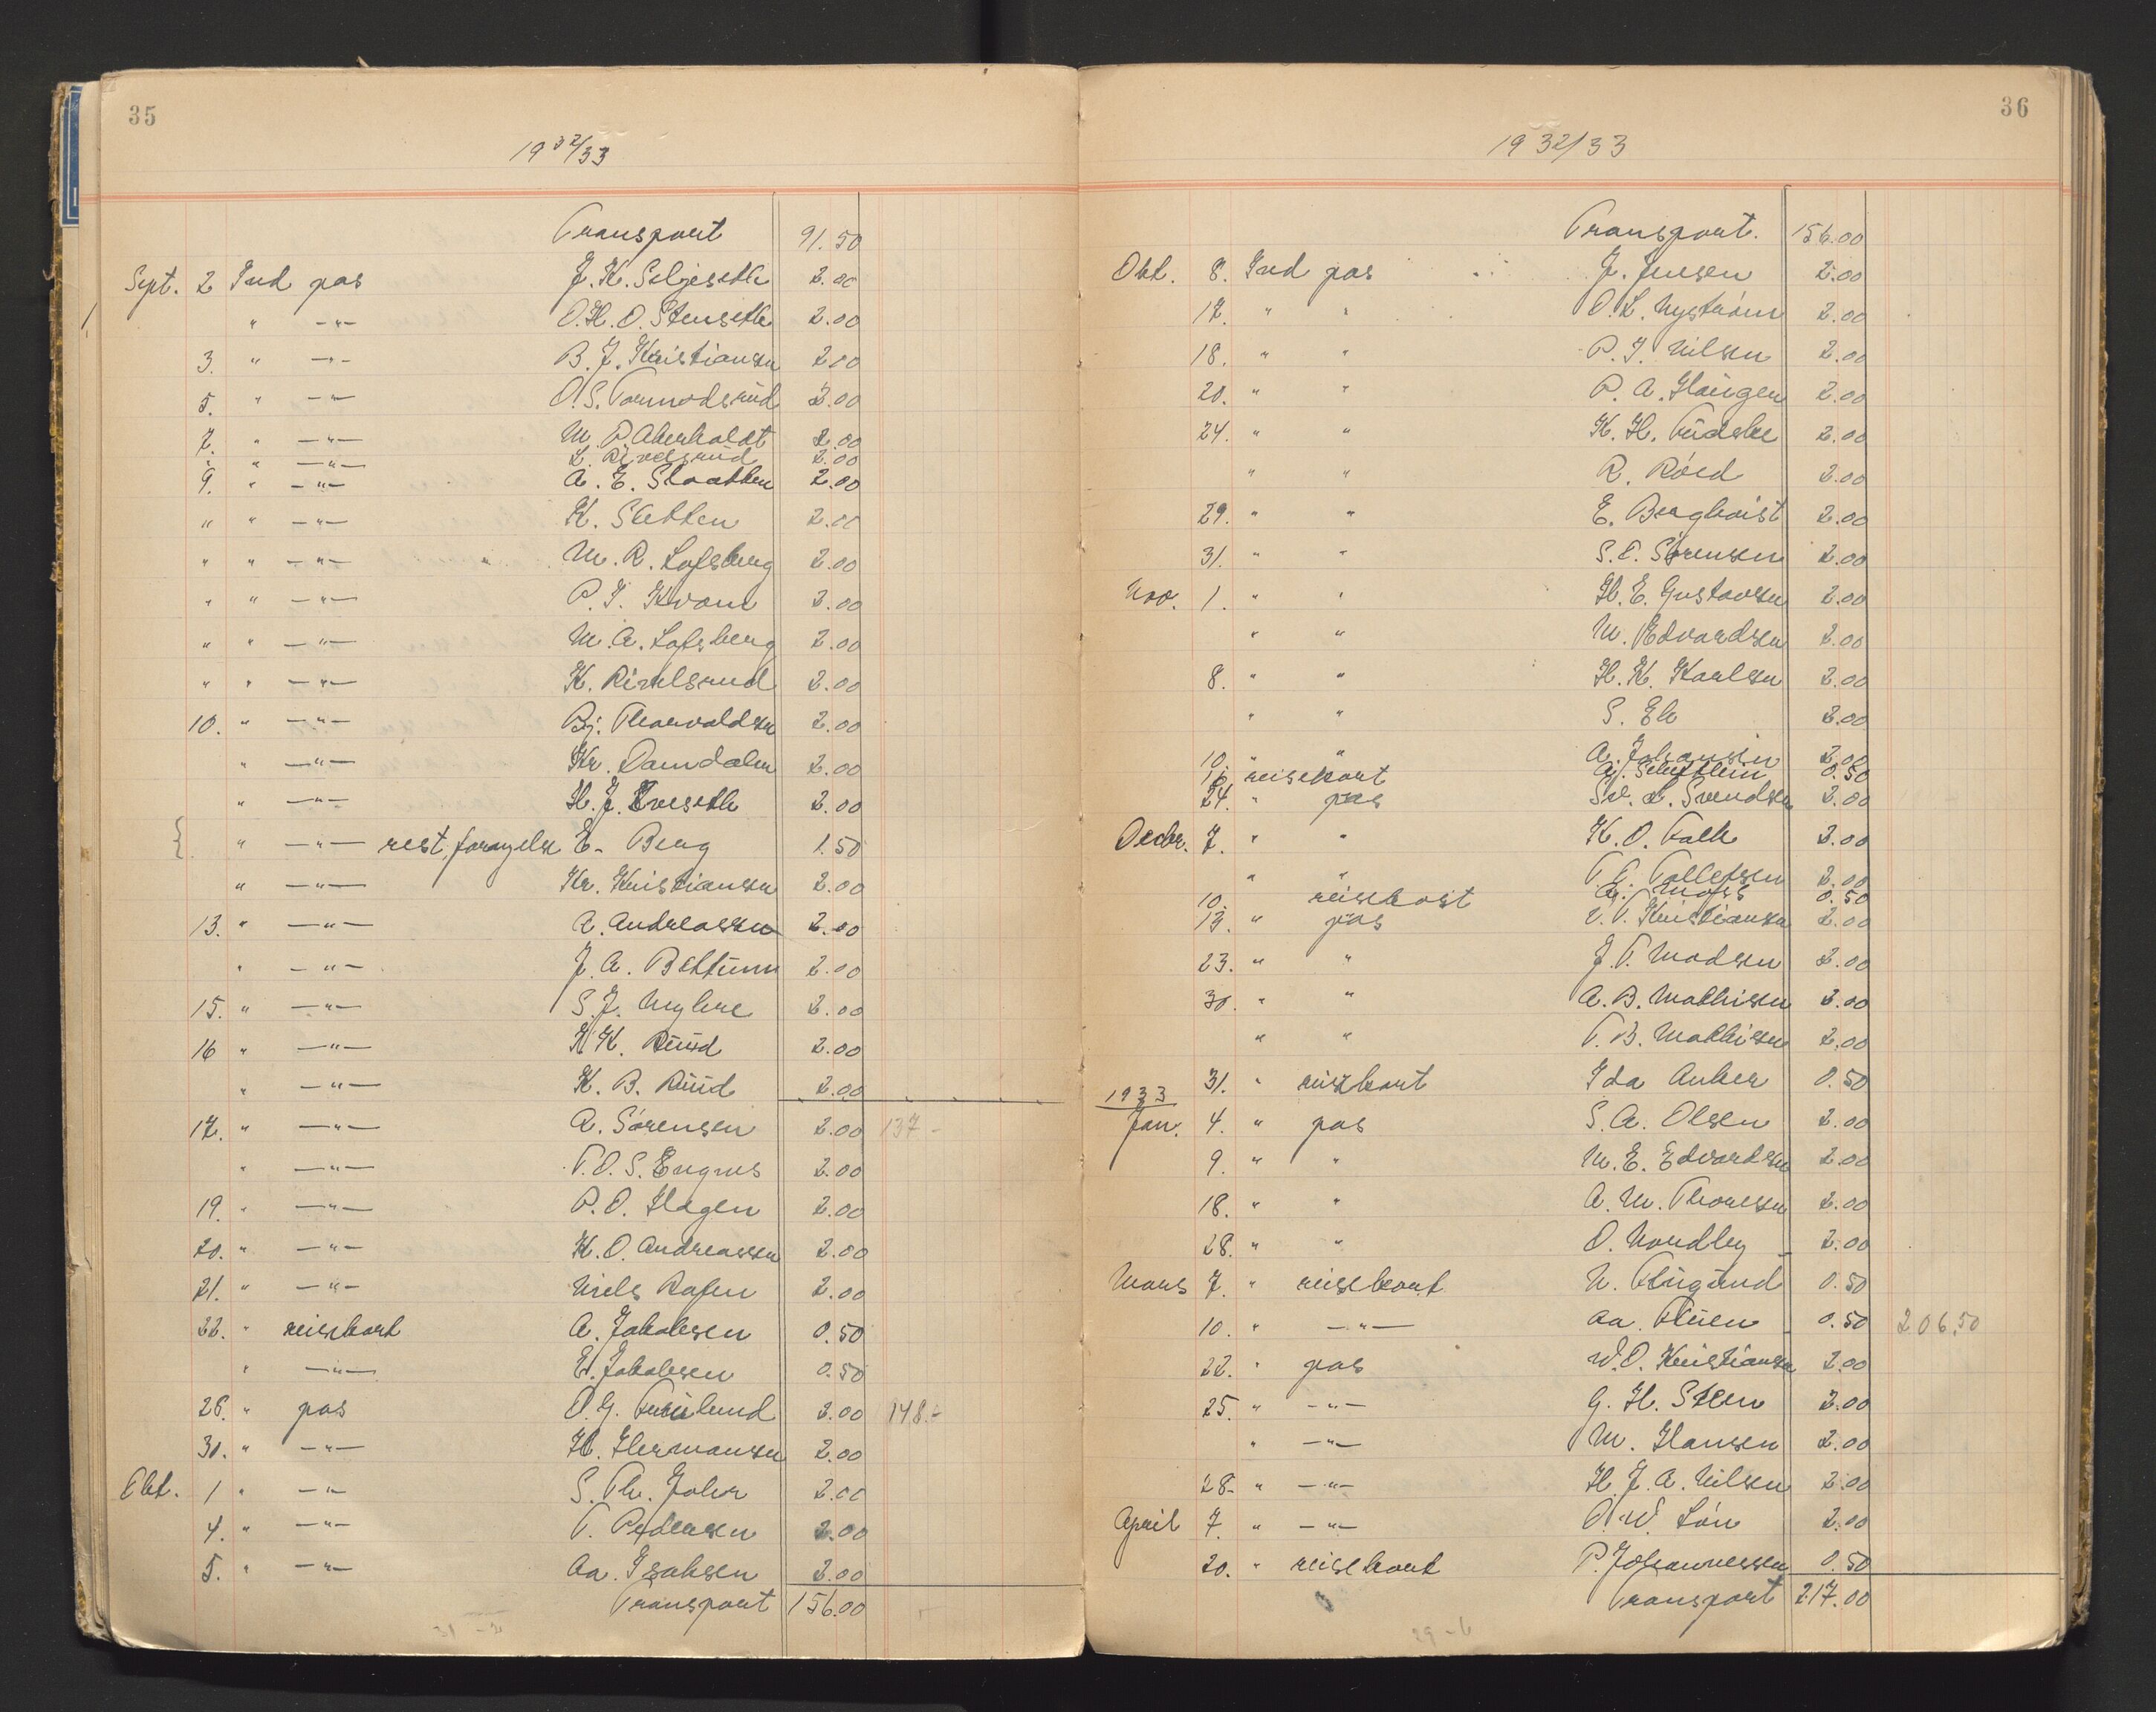 35
19 32/33
Transport 91.50
Sept. 2 Ind pas J. K. Seljeseth 2.00
" -"- O. H. O. Stenseth 2.00
3. " -"- B. J. Kristiansen 2.00
5. " -"- O. S. Tormodsrud 2.00
7. " -"- M. P. Aherholdt 2.00
" " -"- L. Rivelsrud 2.00
9. " -"- A. E. Slaatten 2.00
" " -"- K. Sletten 2.00
" " -"- M. R. Lofsberg 2.00
" " -"- P. T. Kvam 2.00
" " -"- M. A. Lofsberg 2.00
" " -"- K. Rivelsrud 2.00
10. " -"- Bj. Thorvaldsen 2.00
" -"- Kr. Damdalen 2.00
" -"- H. J. 2.00
" -"- rest. fornyelse E. Berg 1.50
" -"- Kr. Kristiansen 2.00
13. " -"- A. Andreassen 2.00
" -"- J. A. Bettum 2.00
15. " -"- S. J. Myhre 2.00
16 " -"- K. K. Ruud 2.00
" -"- K. B. Ruud 2.00
17. " -"- A. Sørensen 2.00 137-
" -"- T. O. S. Engnes 2.00
19. " -"- P. O. Hagen 2.00
20. " -"- K. O. Andreassen 2.00
21. " -"- Niels Rafen 2.00
22. " reisekort A. Jakobsen 0.50
" -"- E. Jakobsen 0.50
26. " pas O. G. 2.00 148.-
30. " -"- H. Hermansen 2.00
Okt. 1 " -"- S. Th. Johr 2.00
4. " -"- T. Pedersen 2.00
5. " -"- Aa. Isaksen 2.00
Transport 156.00
36
19 32/33
Transport. 156.00
Okt. 8. Ind pas J. Jensen 2.00
17. " " O. L. Nystrøm 2.00
18. " " P. T. Nilsen 2.00
20. " " P. A. Haugen 2.00
24. " " K. H. 2.00
" " R. Røed 2.00
29. " " E. Bergkvist 2.00
31. " " S. C. Sørensen 2.00
Nov. 1. " " H. E. Gustavsen 2.00
" " M. Edvardsen 2.00
8. " " H. K. Karlsen 2.00
" " S. Ek 2.00
10. " " A. Johansen 2.00
16. reisekort 0.50
24. " pas Sv. L. Svendsen 2.00
Decbr. 7. " " K. O. Falk 2.00
" " T. C. Tollefsen 2.00
10. reisekort 0.50
13. " pas Kristiansen 2.00
23. " " J. T. Madsen 2.00
30. " " A. B. Mathisen 2.00
" " T. B. Mathisen 2.00
31. " reisekort Ida Anker 0.50
1933
Jan. 4. " pas S. A. Olsen 2.00
9. " " M. E. Edvardsen 2.00
18. " " A. M. Thoresen 2.00
28. " " O. Nordby 2.00
Mars 7. " reisekort N. 0.50
10. " -"- Aa. 0.50 206.50
22. " pas W. O. Kristiansen 2.00
25. " -"- G. H. Steen 2.00
" -"- M. Hansen 2.00
28. " -"- H. J. A. Nilsen 2.00
April 7. " -"- O. W. Løn 2.00
20. " reisekort P. Johannessen 0.50
Transport 217.00
29-6